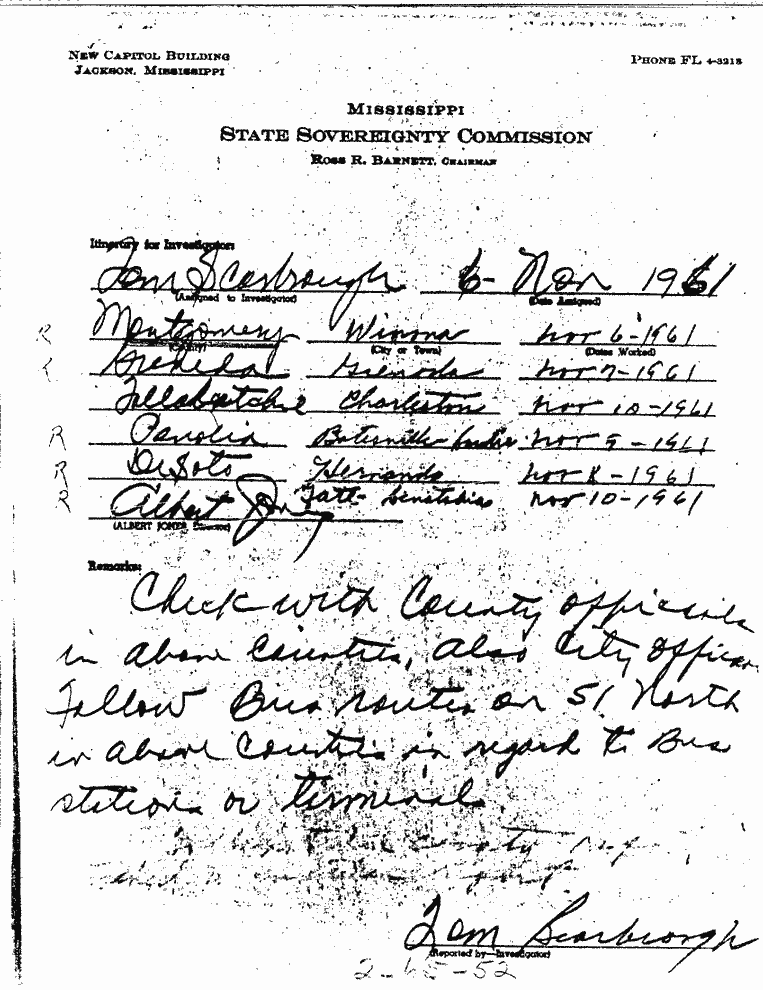 NEW CAPITOL BUILDING
JACKSON, MISSISSIPPI
PHONE FL 4-3218
MISSISSIPPI
STATE SOVEREIGNTY COMMISSION
ROSS R. BARNETT, CHAIRMAN
Itinerary for Investigator:
Tom Scarbrough 6- Nov 1961
(Assigned to Investigator) (Date Assigned)
R Montgomery Winona Nov 6-1961
(County) (City or Town) (Dates Worked)
Grenada Grenada Nov 7-1961
Tallahatchie Charleston Nov 10-1961
R Panola Batesville Nov 9-1961
R DeSoto Hernando Nov 8-1961
R Albert Jones Tate- Senatobia Nov 10-1961
(ALBERT JONES, Director)
Remarks:
Check with County officials
in above Counties, also City Officers
Follow Bus routes on 51 North
in above Counties in regard to Bus
stations or terminals.
County
Tom Scarbrough
(Reported by—Investigator)
2-65-52